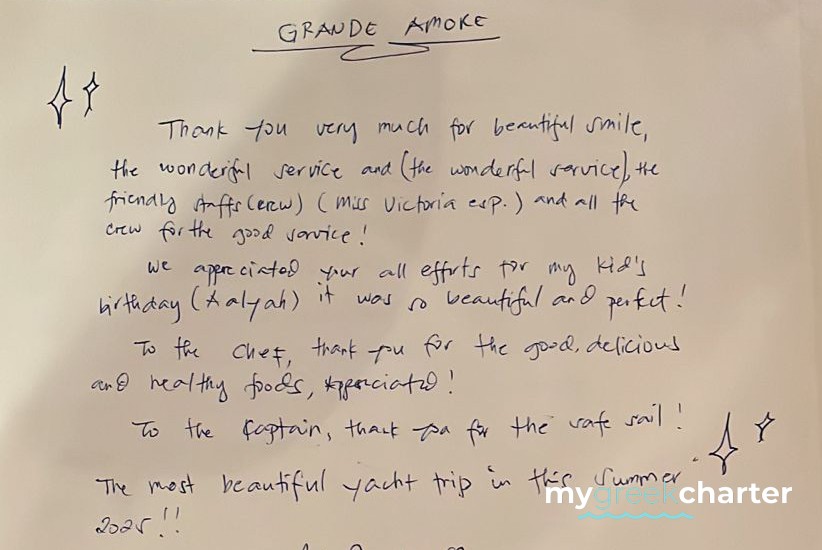 GRANDE AMORE
Thank you very much for beautiful smile,
the wonderful service and (the wonderful service), the
friendly staffs (crew) (miss Victoria esp.) and all the
crew for the good service!
We appreciated your all efforts for my kid's
birthday (Aalyah) it was so beautiful and perfect!
To the Chef, thank you for the good, delicious
and healthy foods, Appreciated!
To the Captain, thank you for the safe sail!
The most beautiful yacht trip in this Summer
2025!!
mygreekcharter